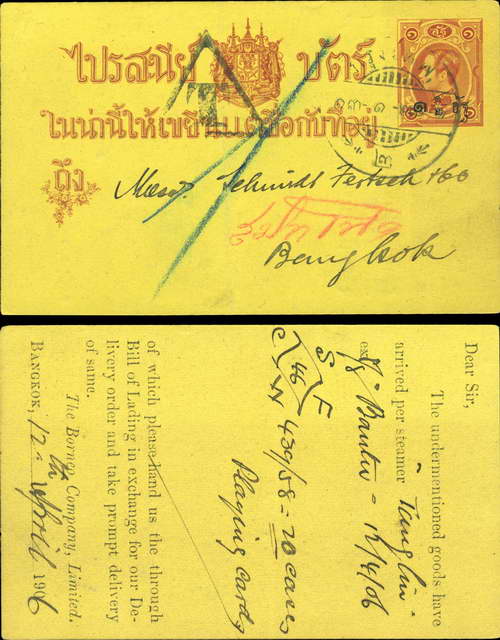 ไปรสนีย์ บัตร์
ในน่านี้ให้เขียนแต่ชื่อกับที่อยู่
ถึง
Messrs. Schmidt Fertsch & Co
Bangkok
Dear Sir,
The undermentioned goods have
arrived per steamer "Tinglin"
ex "Bantu" 12/4/06
F
S 46
C N 439/58 = 20 cases
Playing cards
of which please hand us the through
Bill of Lading in exchange for our De-
livery order and take prompt delivery
of same.
The Borneo Company, Limited.
BANGKOK, 12th April 1906